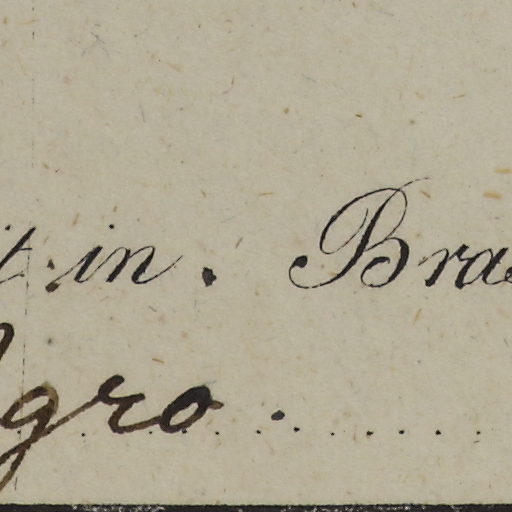 it in. Bras
gro.